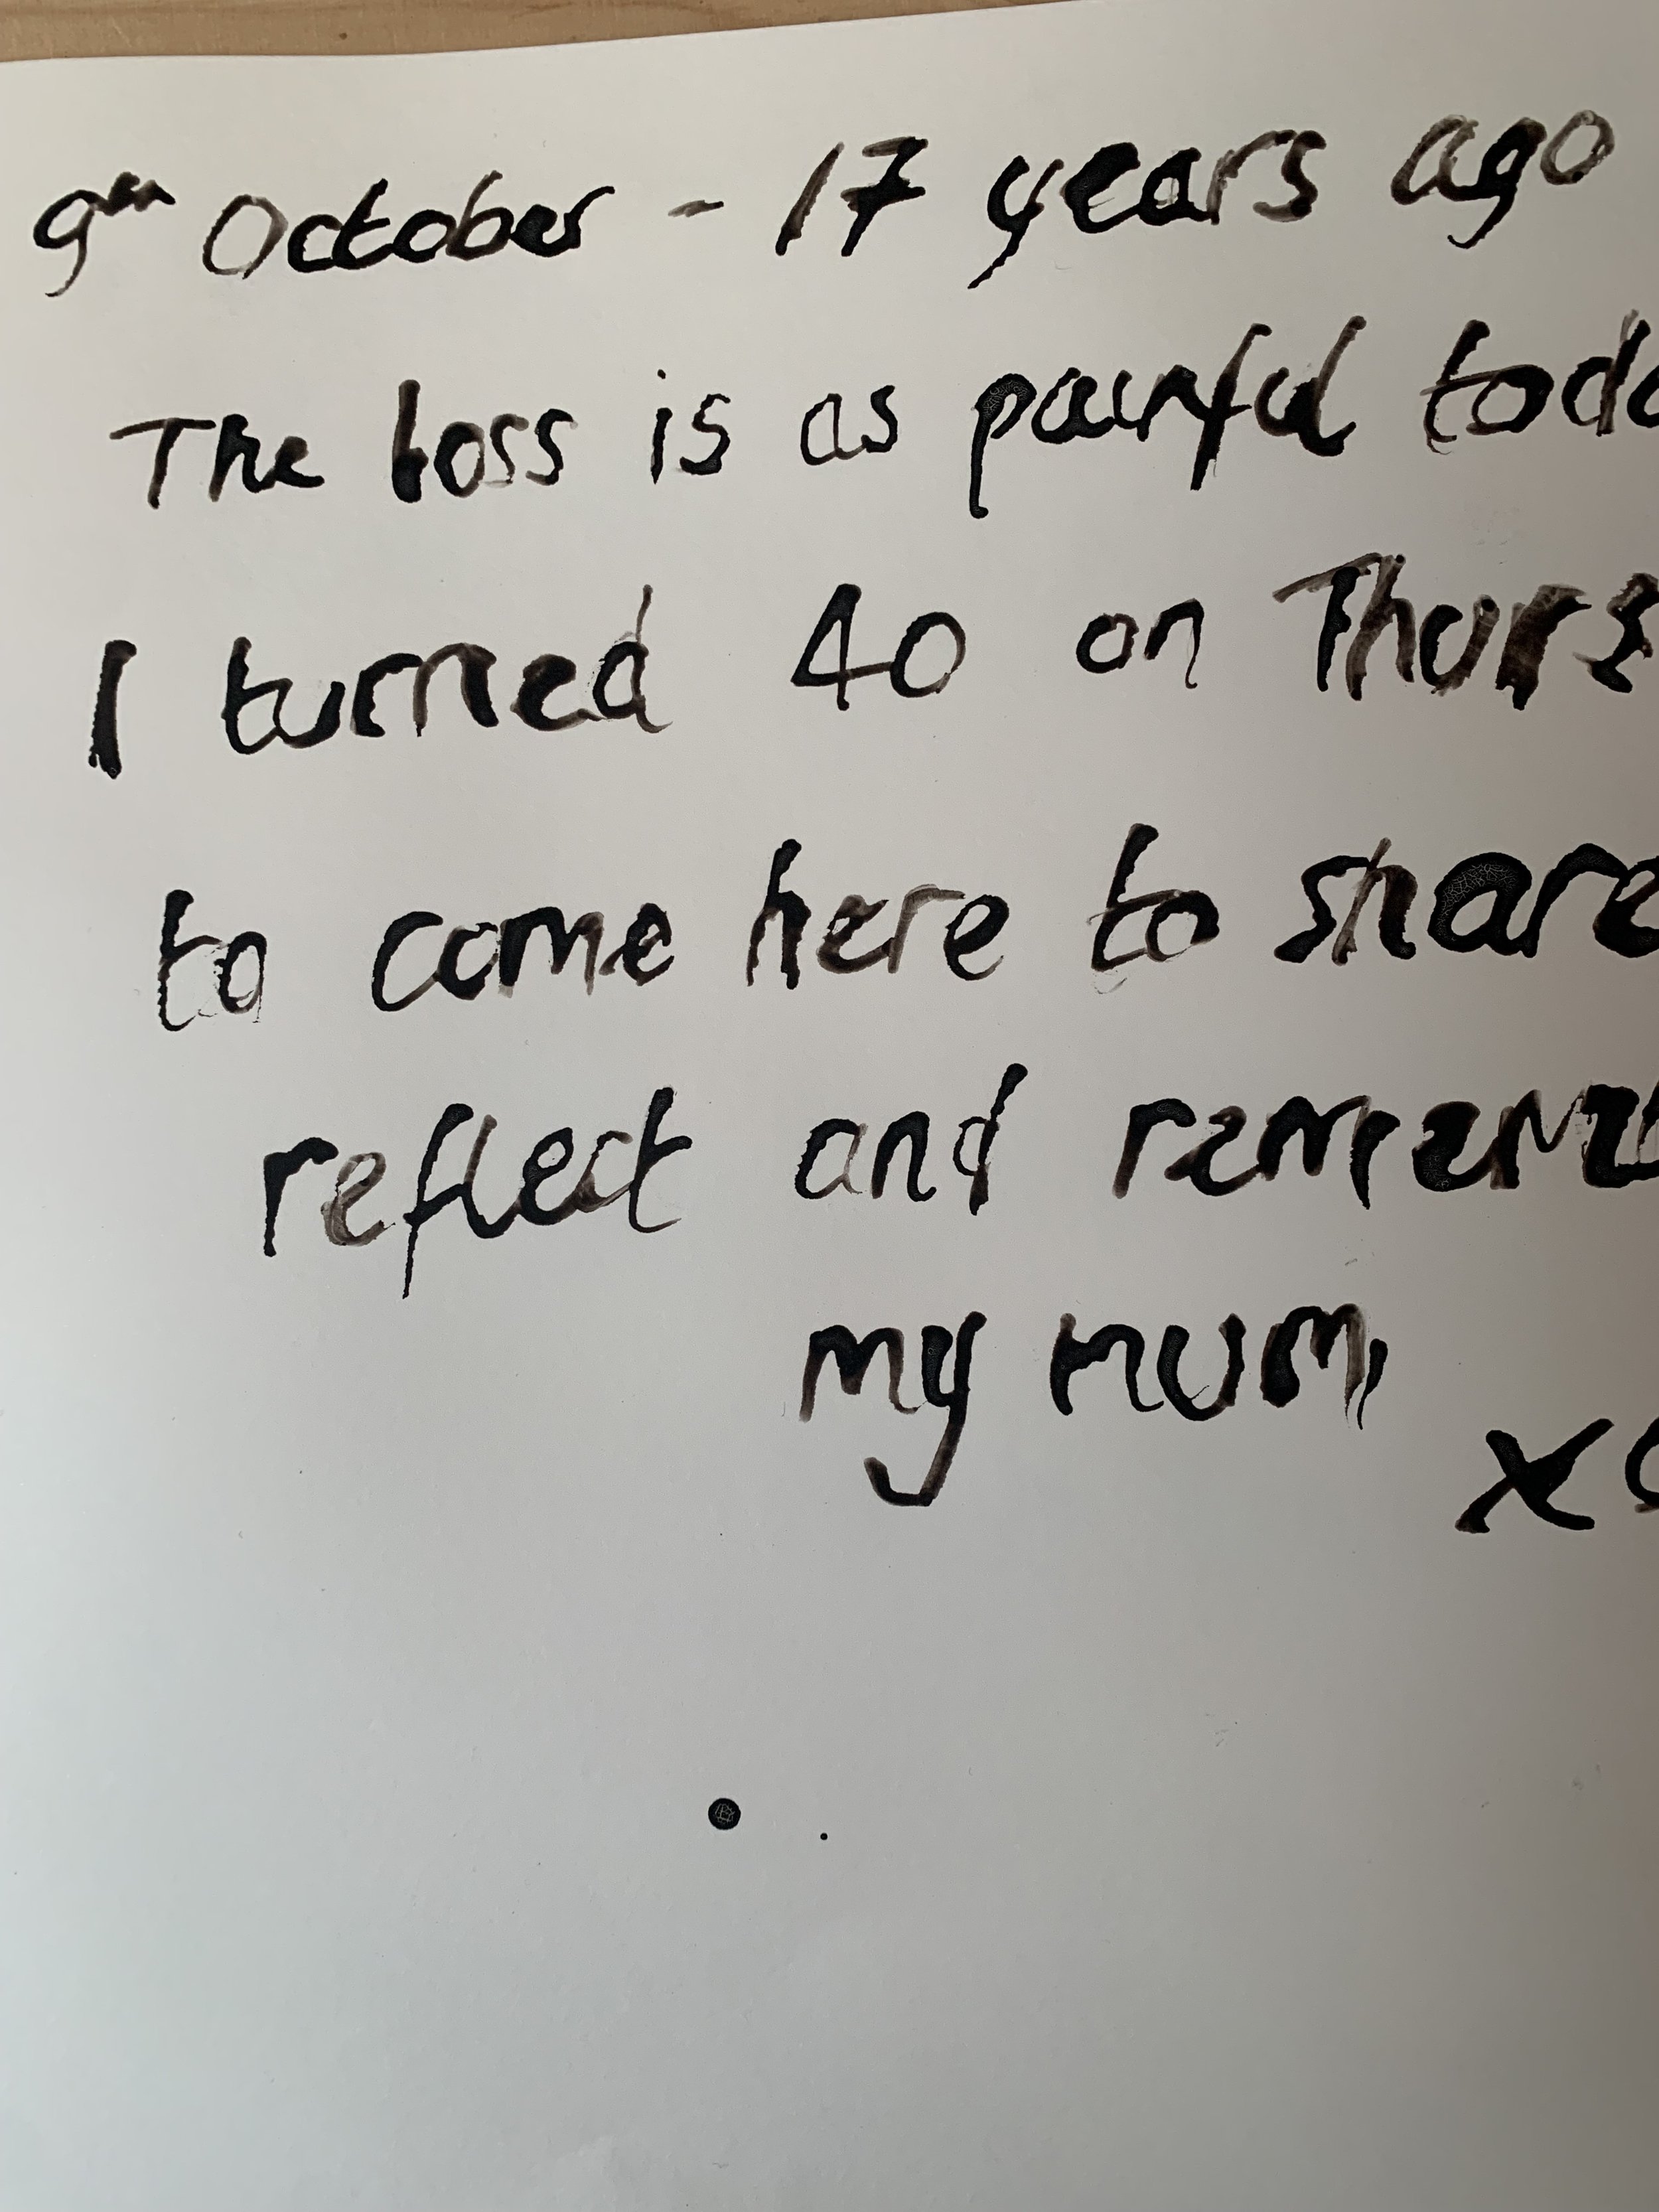 9th October - 17 years ago
The loss is as painful toda
I turned 40 on Thurs
to come here to share
reflect and rememb
my mum,
xo